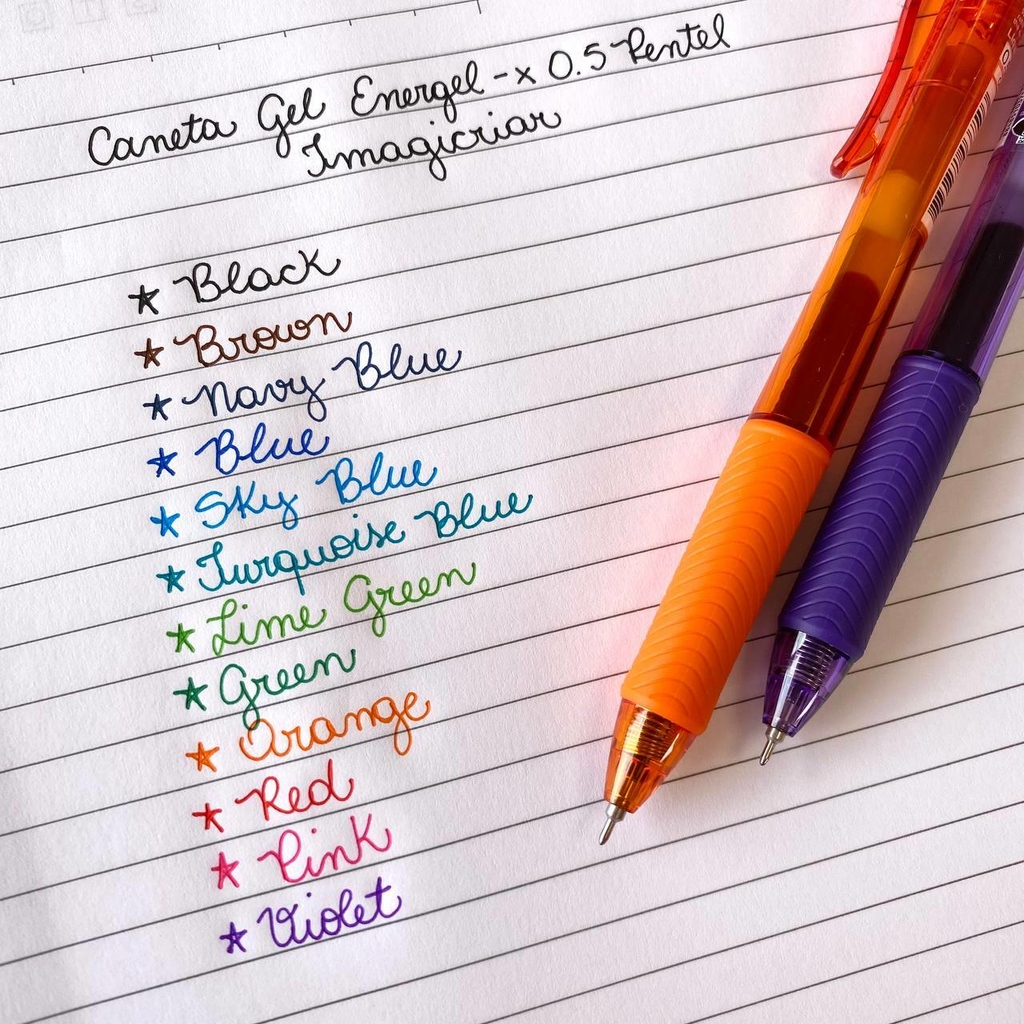 Caneta Gel Energel-x 0.5 Pentel
Imagicriar
★ Black
★ Brown
★ Navy Blue
★ Blue
★ Sky Blue
★ Turquoise Blue
★ Lime Green
★ Green
★ Orange
★ Red
★ Pink
★ Violet